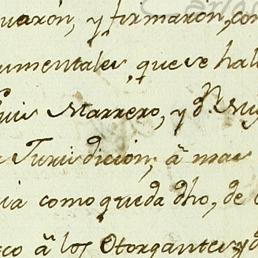 uarón, y firmarón, con
umentales que se hal
Luis Marrero, y Dn. 
Jurisdicion, â mas
ia como queda dho, de
â los Otorgantes, y d